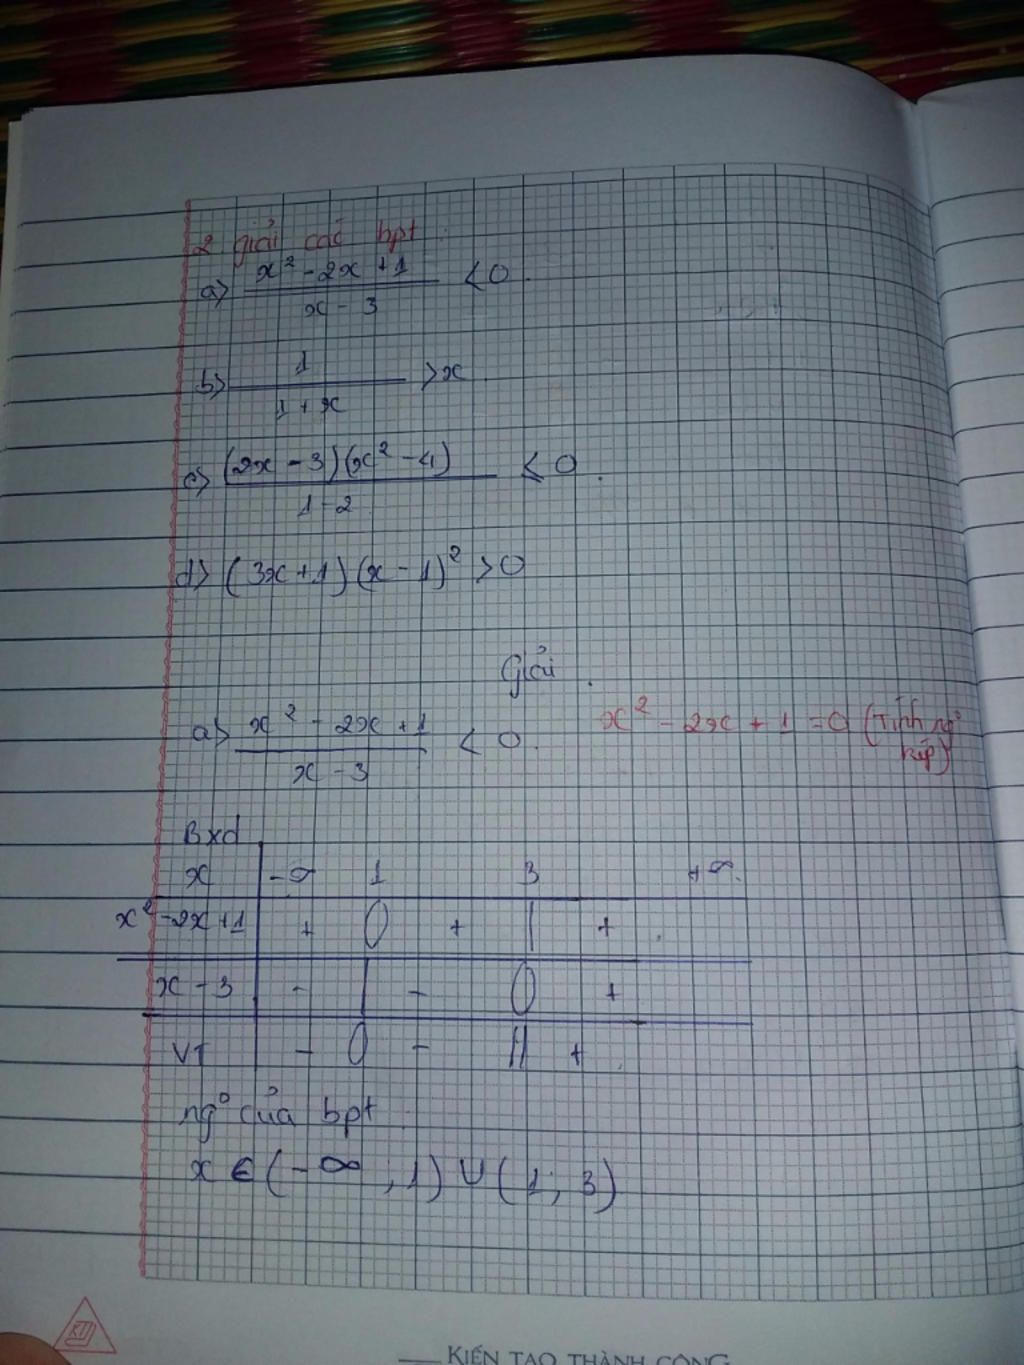 2 giải các bpt
a> x² - 2x + 1 / x - 3 < 0
b> 1 / 1 + x > x
c> (2x - 3)(x² - 4) / 1 - 2 ≤ 0
d> (3x + 1)(x - 1)² > 0
Giải
a> x² - 2x + 1 / x - 3 < 0
x² - 2x + 1 = 0 (Tính ng⁰
kép)
Bxd
x -∞ 1 3 +∞
x² - 2x + 1 + 0 + | +
x - 3 - | - 0 +
VT - 0 - || +
ng⁰ của bpt
x ∈ (-∞; 1) ∪ (1; 3)
KTI
KIẾN TẠO THÀNH CÔNG